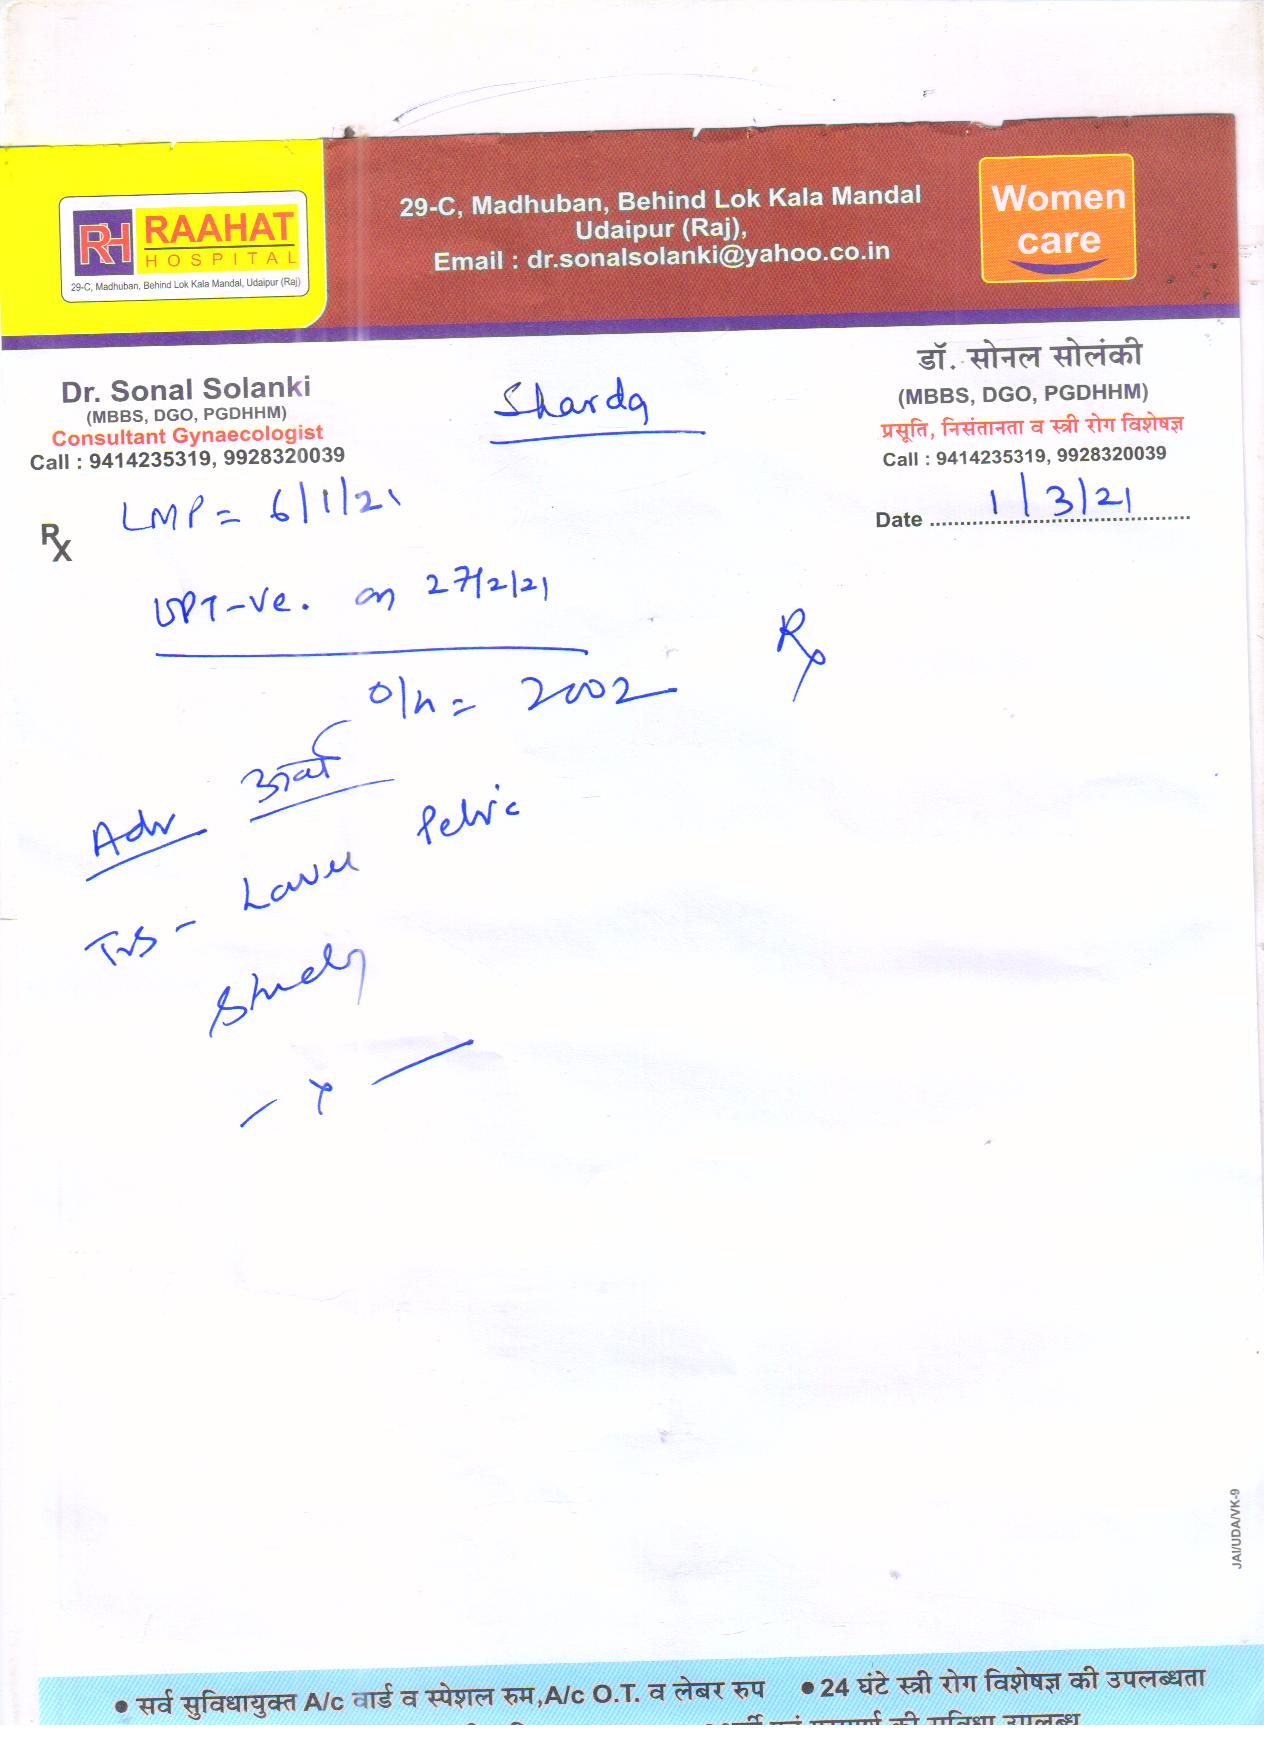 RH RAAHAT
HOSPITAL
29-C, Madhuban, Behind Lok Kala Mandal, Udaipur (Raj)
29-C, Madhuban, Behind Lok Kala Mandal
Udaipur (Raj),
Email : dr.sonalsolanki@yahoo.co.in
Women
care
Dr. Sonal Solanki
(MBBS, DGO, PGDHHM)
Consultant Gynaecologist
Call : 9414235319, 9928320039
Sharda
डॉ. सोनल सोलंकी
(MBBS, DGO, PGDHHM)
प्रसूति, निसंतानता व स्त्री रोग विशेषज्ञ
Call : 9414235319, 9928320039
Date 1/3/21
Rx LMP = 6/1/21
UPT-ve. on 27/2/21
Rx
O/H = 2002
Adv
TVS - Lower Pelvic
Study
- x -
JAI/UDA/VK-9
• सर्व सुविधायुक्त A/c वार्ड व स्पेशल रुम,A/c O.T. व लेबर रुप • 24 घंटे स्त्री रोग विशेषज्ञ की उपलब्धता
की सुविधा उपलब्ध